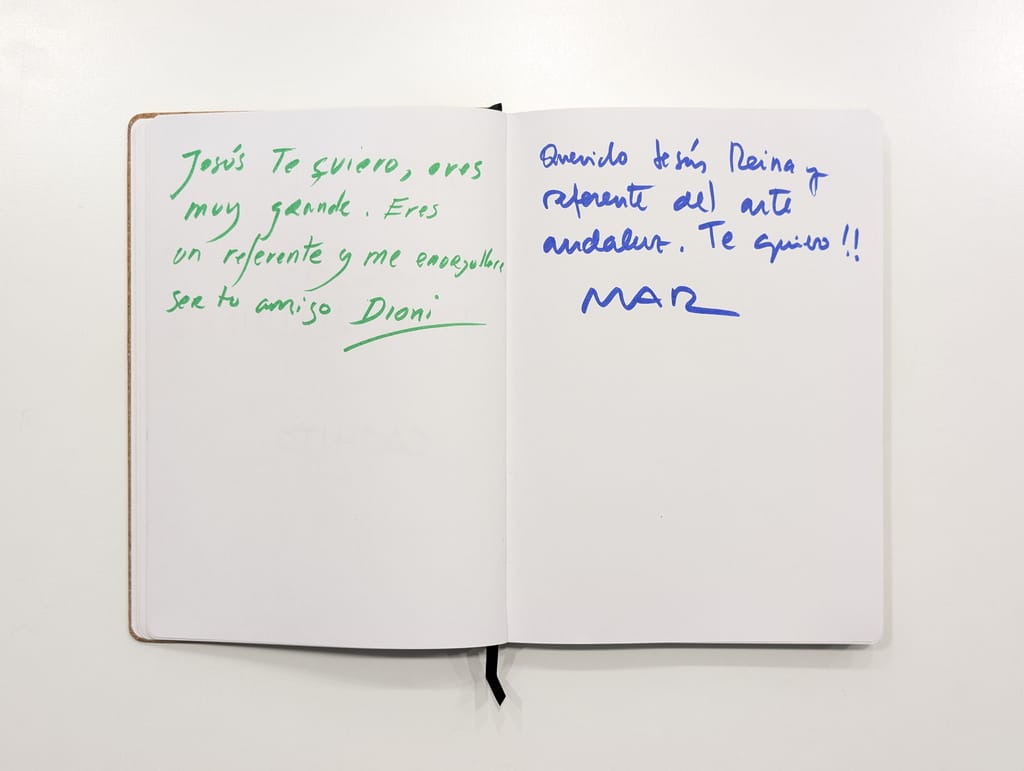 Jesús Te quiero, eres
muy grande. Eres
un referente y me enorgullece
ser tu amigo Dioni
Querido Jesús Reina y
referente del arte
andaluz. Te quiero!!
MAR